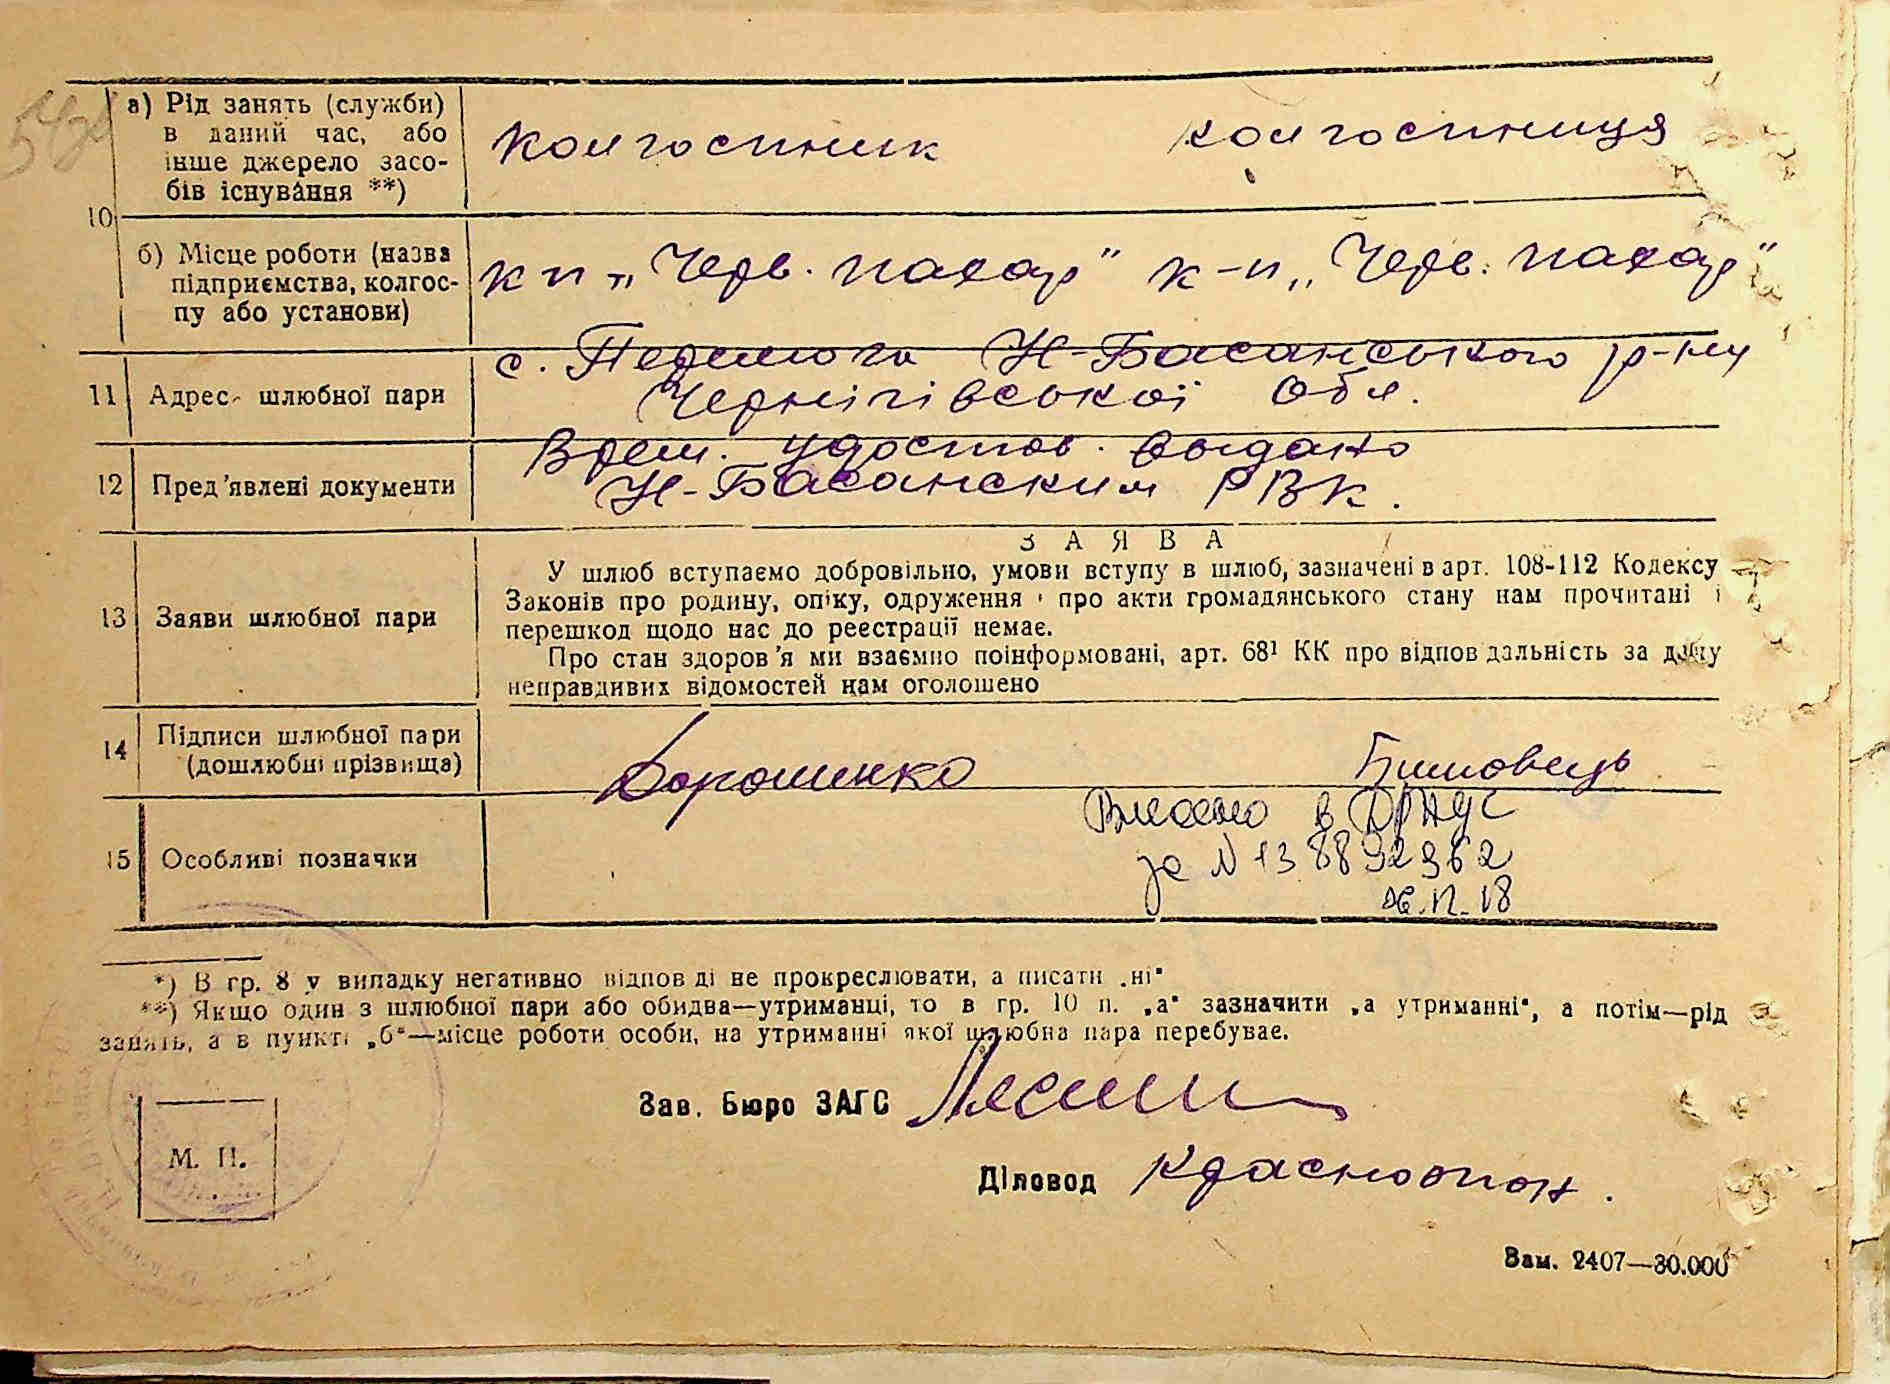 10
а) Рід занять (служби)
в даний час, або
інше джерело засо-
бів існування **)
колгоспник колгоспниця
б) Місце роботи (назва
підприємства, колгос-
пу або установи)
к-п „Черв. пахар" к-п „Черв. пахар"
11 Адрес шлюбної пари
с. Перемога Н-Басанського р-ну
Чернігівської обл.
12 Пред'явлені документи
Врем. удостов. выдано
Н-Басанским РВК.
13 Заяви шлюбної пари
ЗАЯВА
У шлюб вступаємо добровільно, умови вступу в шлюб, зазначені в арт. 108-112 Кодексу
Законів про родину, опіку, одруження і про акти громадянського стану нам прочитані і
перешкод щодо нас до реєстрації немає.
Про стан здоров'я ми взаємно поінформовані, арт. 68¹ КК про відповідальність за дачу
неправдивих відомостей нам оголошено
14 Підписи шлюбної пари
(дошлюбні прізвища)
Дорошенко
15 Особливі позначки
Внесено в ДРАЦС
за N 138892362
06.12.18
*) В гр. 8 у випадку негативно відповіді не прокреслювати, а писати „ні"
**) Якщо один з шлюбної пари або обидва—утриманці, то в гр. 10 п. „а" зазначити „а утриманні", а потім—рід
занять, а в пункті „б"—місце роботи особи, на утриманні якої шлюбна пара перебуває.
Зав. Бюро ЗАГС
М. П.
Діловод
Зам. 2407—30.000